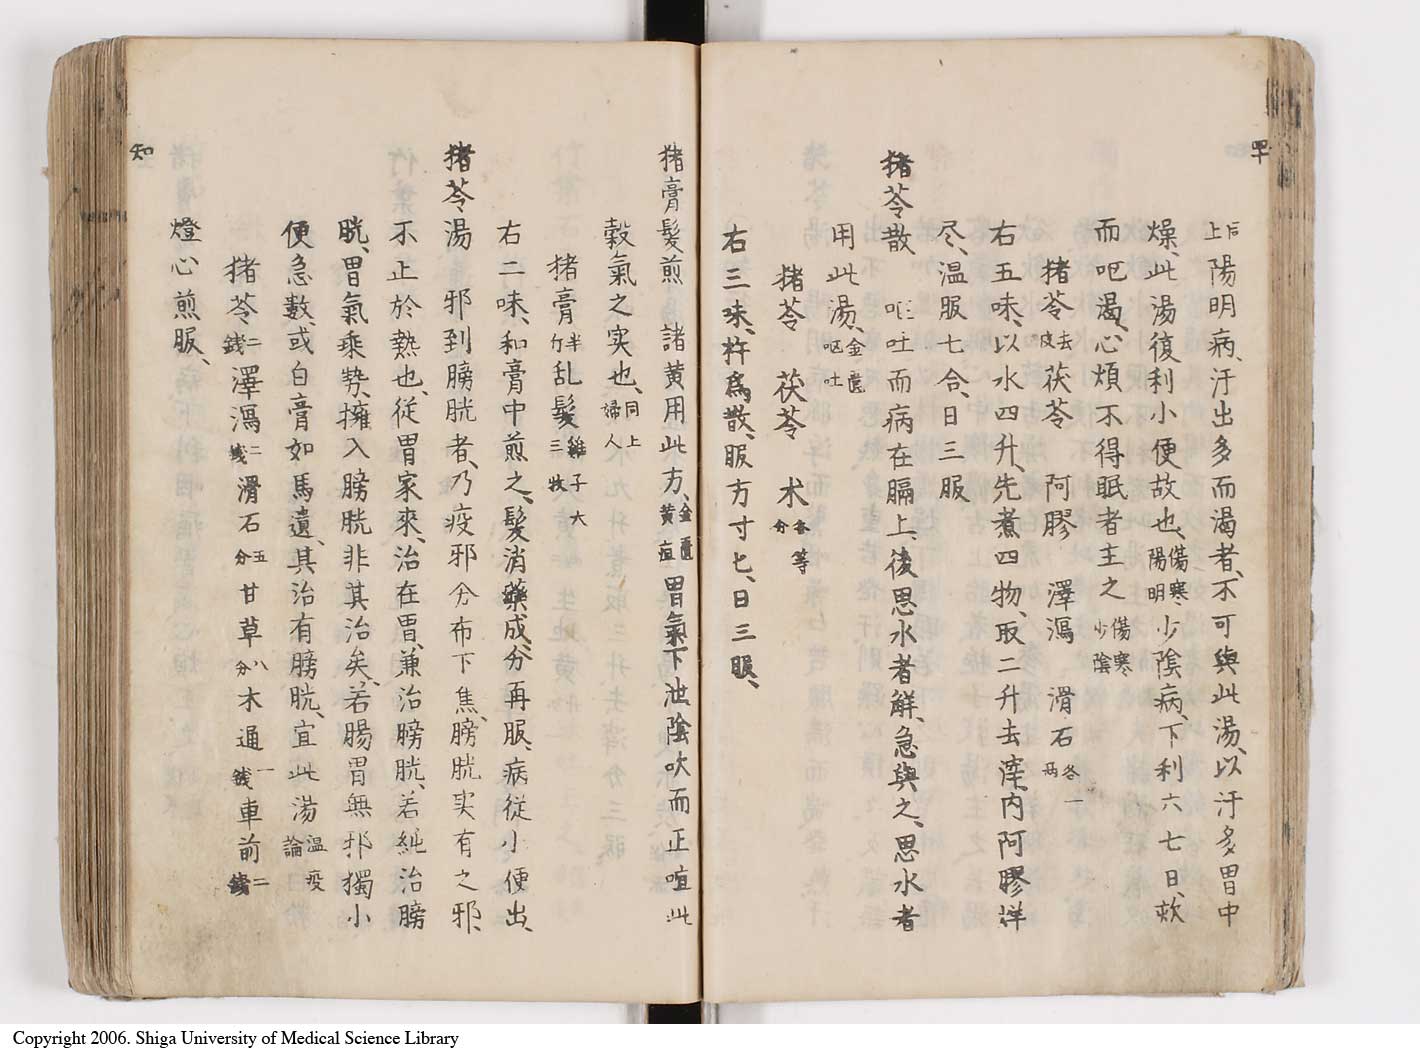 四十
同上 陽明病、汗出多而渇者、不可與此湯、以汗多胃中
燥、此湯復利小便故也、傷寒陽明 少陰病、下利六七日、欬
而呕渇、心煩不得眠者主之 傷寒少陰
猪苓去皮 茯苓 阿膠 澤瀉 滑石各一两
右五味、以水四升、先煮四物、取二升去滓、内阿膠烊
尽、温服七合、日三服
猪苓散 呕吐而病在膈上、後思水者解、急與之、思水者
用此湯、金匱呕吐
猪苓 茯苓 术各等分
右三味、杵爲散、服方寸匕、日三服、
猪膏髪煎 諸黄用此方、金匱黄疸 胃氣下泄陰吹而正喧此
穀氣之实也、同上婦人
猪膏半斤 乱髪雞子六三枚
右二味、和膏中煎之、髪消藥成、分再服、病従小便出、
猪苓湯 邪到膀胱者、乃疫邪分布下焦、膀胱实有之邪、
不止於熱也、従胃家來、治在胃、兼治膀胱、若純治膀
胱、胃氣乘勢、擁入膀胱非其治矣、若腸胃無邪獨小
便急数、或白膏如馬遺、其治有膀胱、宜此湯 温疫論
猪苓二錢 澤瀉二錢 滑石五分 甘草八分 木通一錢 車前二錢
燈心煎服、
知
Copyright 2006. Shiga University of Medical Science Library